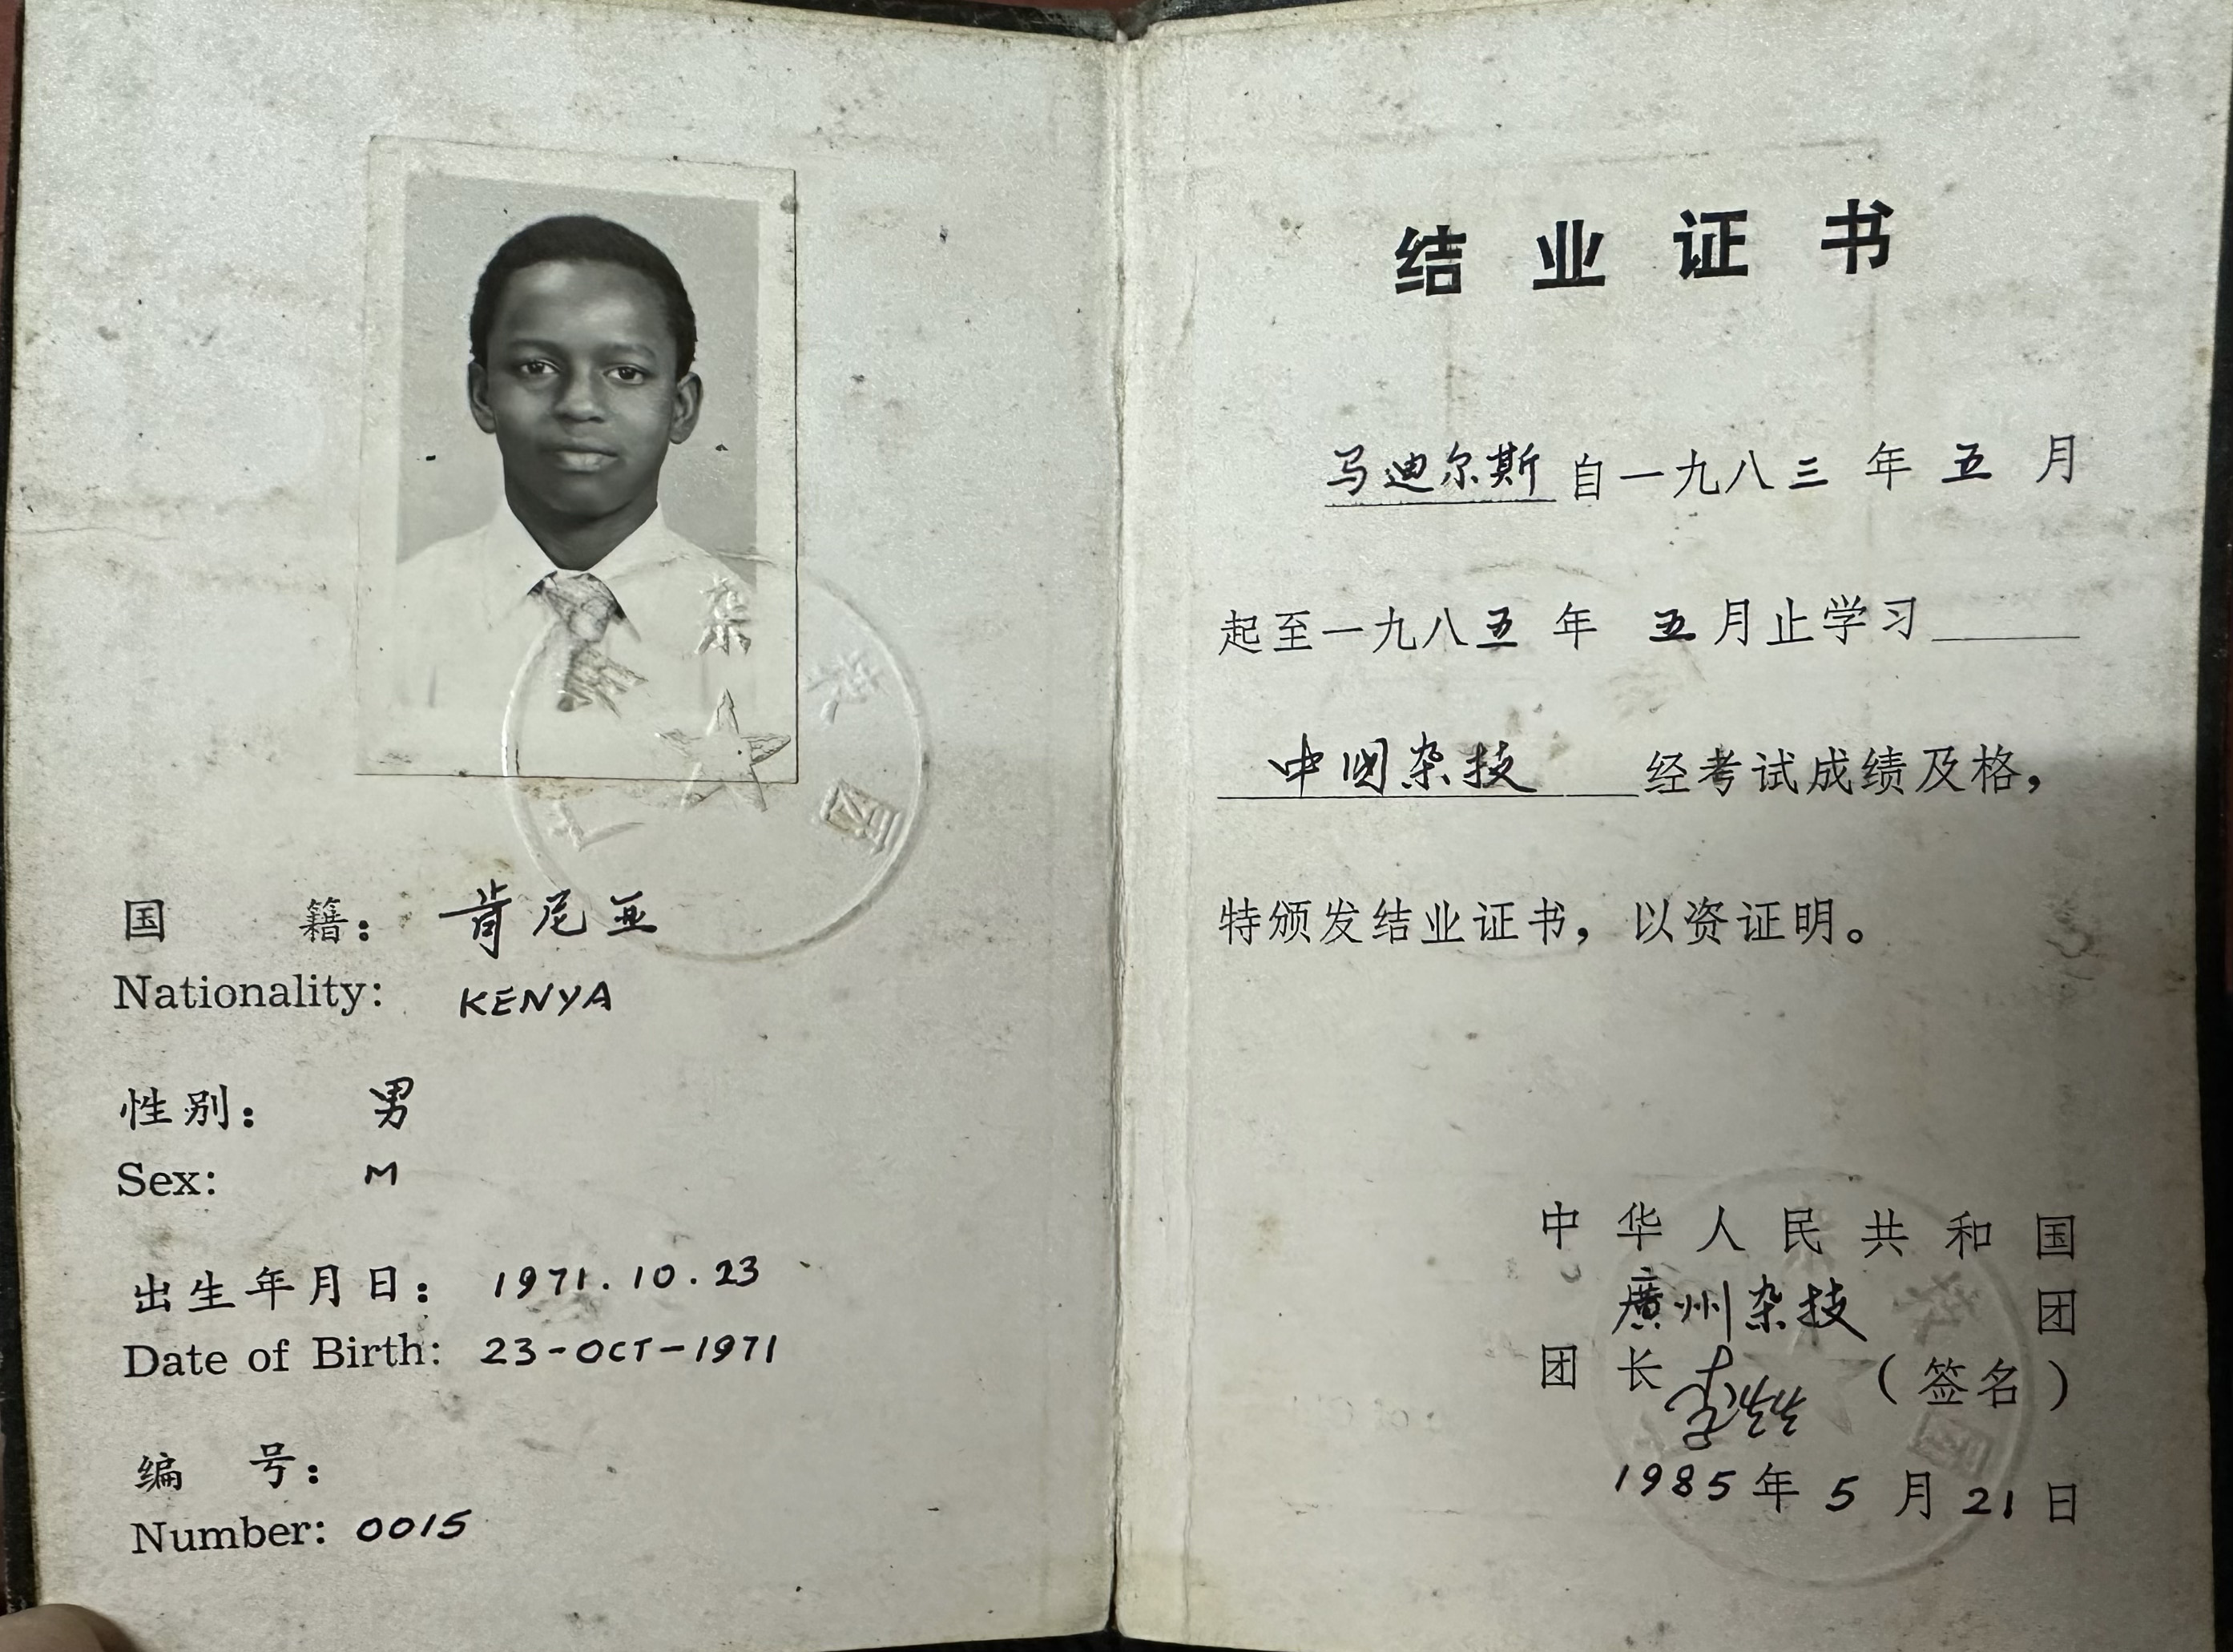 国 籍： 肯尼亚
Nationality: KENYA
性别： 男
Sex: M
出生年月日： 1971.10.23
Date of Birth: 23-OCT-1971
编 号：
Number: 0015
结业证书
马迪尔斯自一九八三年五月
起至一九八五年 五月止学习
中国杂技 经考试成绩及格，
特颁发结业证书，以资证明。
中华人民共和国
廣州杂技 团
团长 （签名）
1985年5月21日